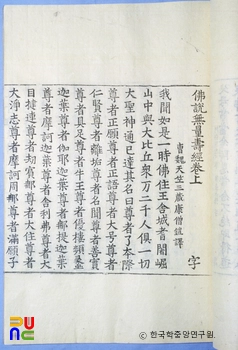 佛說無量壽經卷上
曹魏天竺三藏康僧鎧譯
字
我聞如是一時佛住王舍城耆闍崛
山中與大比丘衆万二千人俱一切
大聖神通已達其名曰尊者了本際
尊者正願尊者正語尊者大号尊者
仁賢尊者離垢尊者名聞尊者善實
尊者具足尊者牛王尊者優樓頻蠡
迦葉尊者伽耶迦葉尊者那提迦葉
尊者摩訶迦葉尊者舍利弗尊者大
目揵連尊者劫賓那尊者大住尊者
大淨志尊者摩訶周那尊者滿願子
한국학중앙연구원